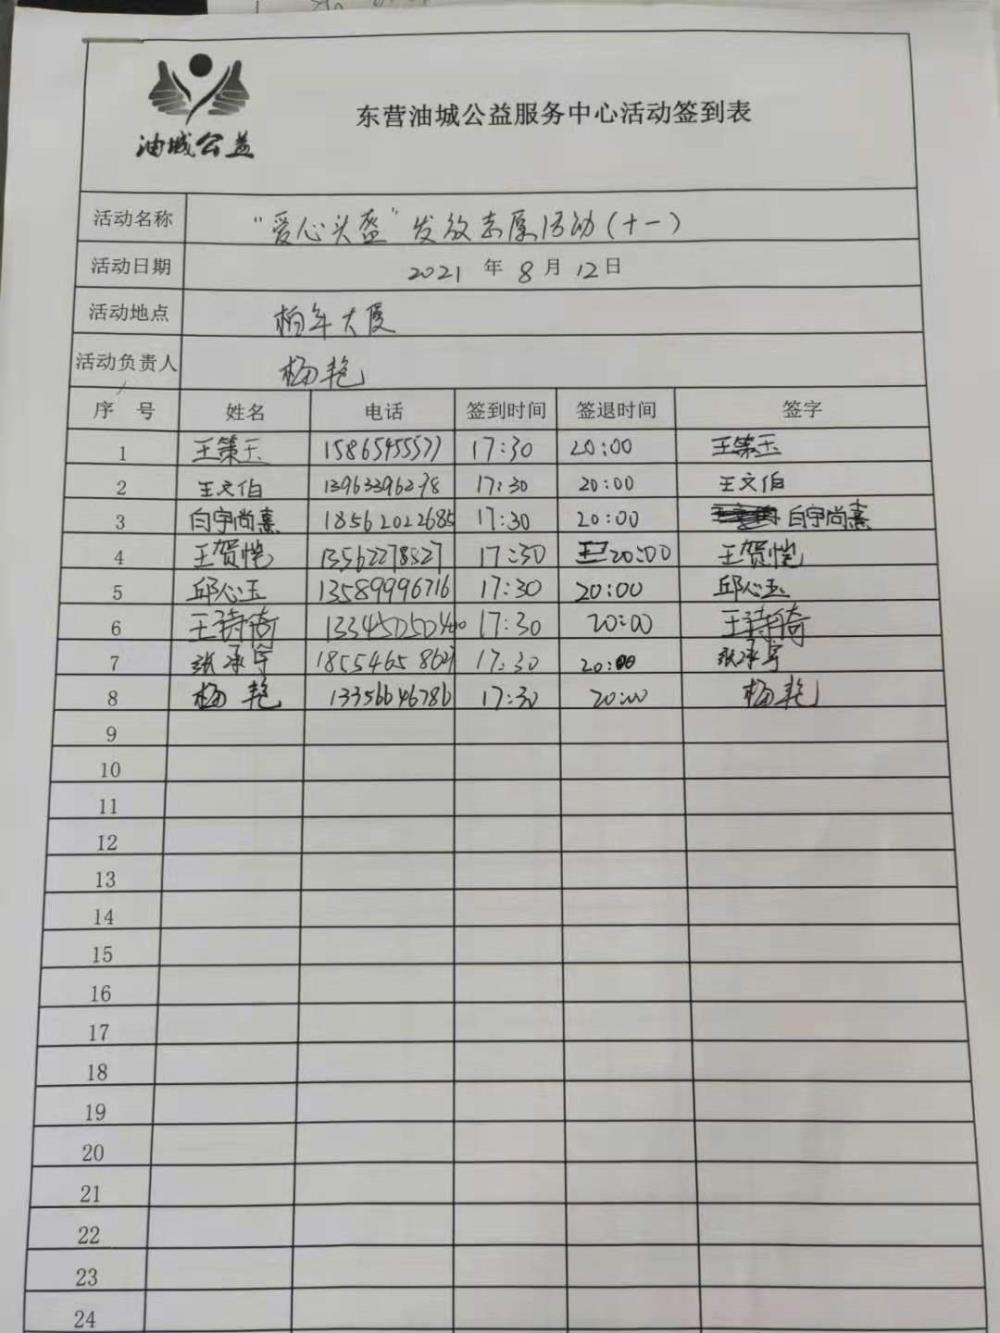 油城公益
东营油城公益服务中心活动签到表
活动名称 “爱心头盔”发放志愿活动(十一)
活动日期 2021 年 8 月 12 日
活动地点 柏年大厦
活动负责人 杨艳
序 号 姓名 电话 签到时间 签退时间 签字
1 王策玉 15865455577 17:30 20:00 王策玉
2 王文伯 13963396298 17:30 20:00 王文伯
3 白宇尚熹 18562022685 17:30 20:00 白宇尚熹
4 王贺恺 13562278527 17:30 20:00 王贺恺
5 邱心玉 13589996716 17:30 20:00 邱心玉
6 王诗倚 17:30 20:00 王诗倚
7 张承宇 17:30 20:00 张承宇
8 杨艳 13356646786 17:30 20:00 杨艳
9
10
11
12
13
14
15
16
17
18
19
20
21
22
23
24